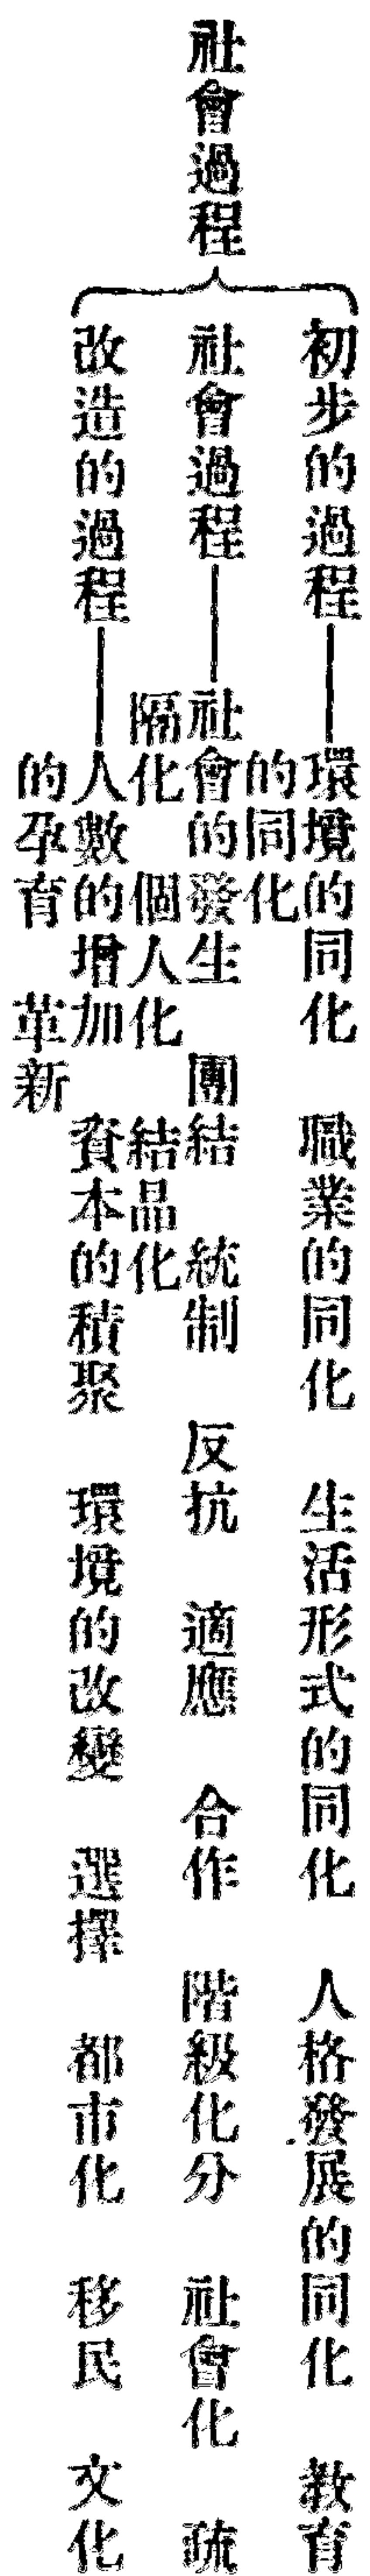 社會過程
初步的過程——環境的同化　職業的同化　生活形式的同化　人格發展的同化　教育
的同化
社會過程——社會的發生　團結　統制　反抗　適應　合作　階級化分　社會化　疏
隔化　個人化　結晶化
改造的過程——人數的增加　資本的積聚　環境的改變　選擇　都市化　移民　文化
的孕育　革新